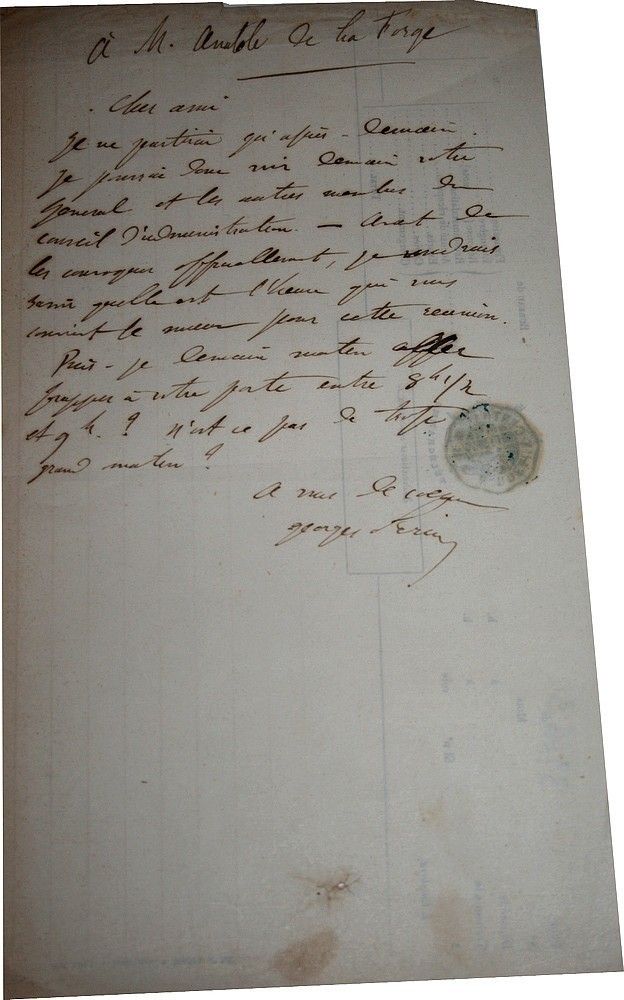 à M. Anatole de La Forge
Cher ami
Je ne partirai qu'après-demain.
Je pourrai donc voir demain votre
général et les autres membres du
conseil d'administration. — Avant de
les convoquer officiellement, je voudrais
savoir quelle est l'heure qui vous
convient le mieux pour cette réunion.
Puis-je demain matin aller
frapper à votre porte entre 8h 1/2
et 9 h. ? n'est ce pas de trop
grand matin ?
A vous de cœur
georges